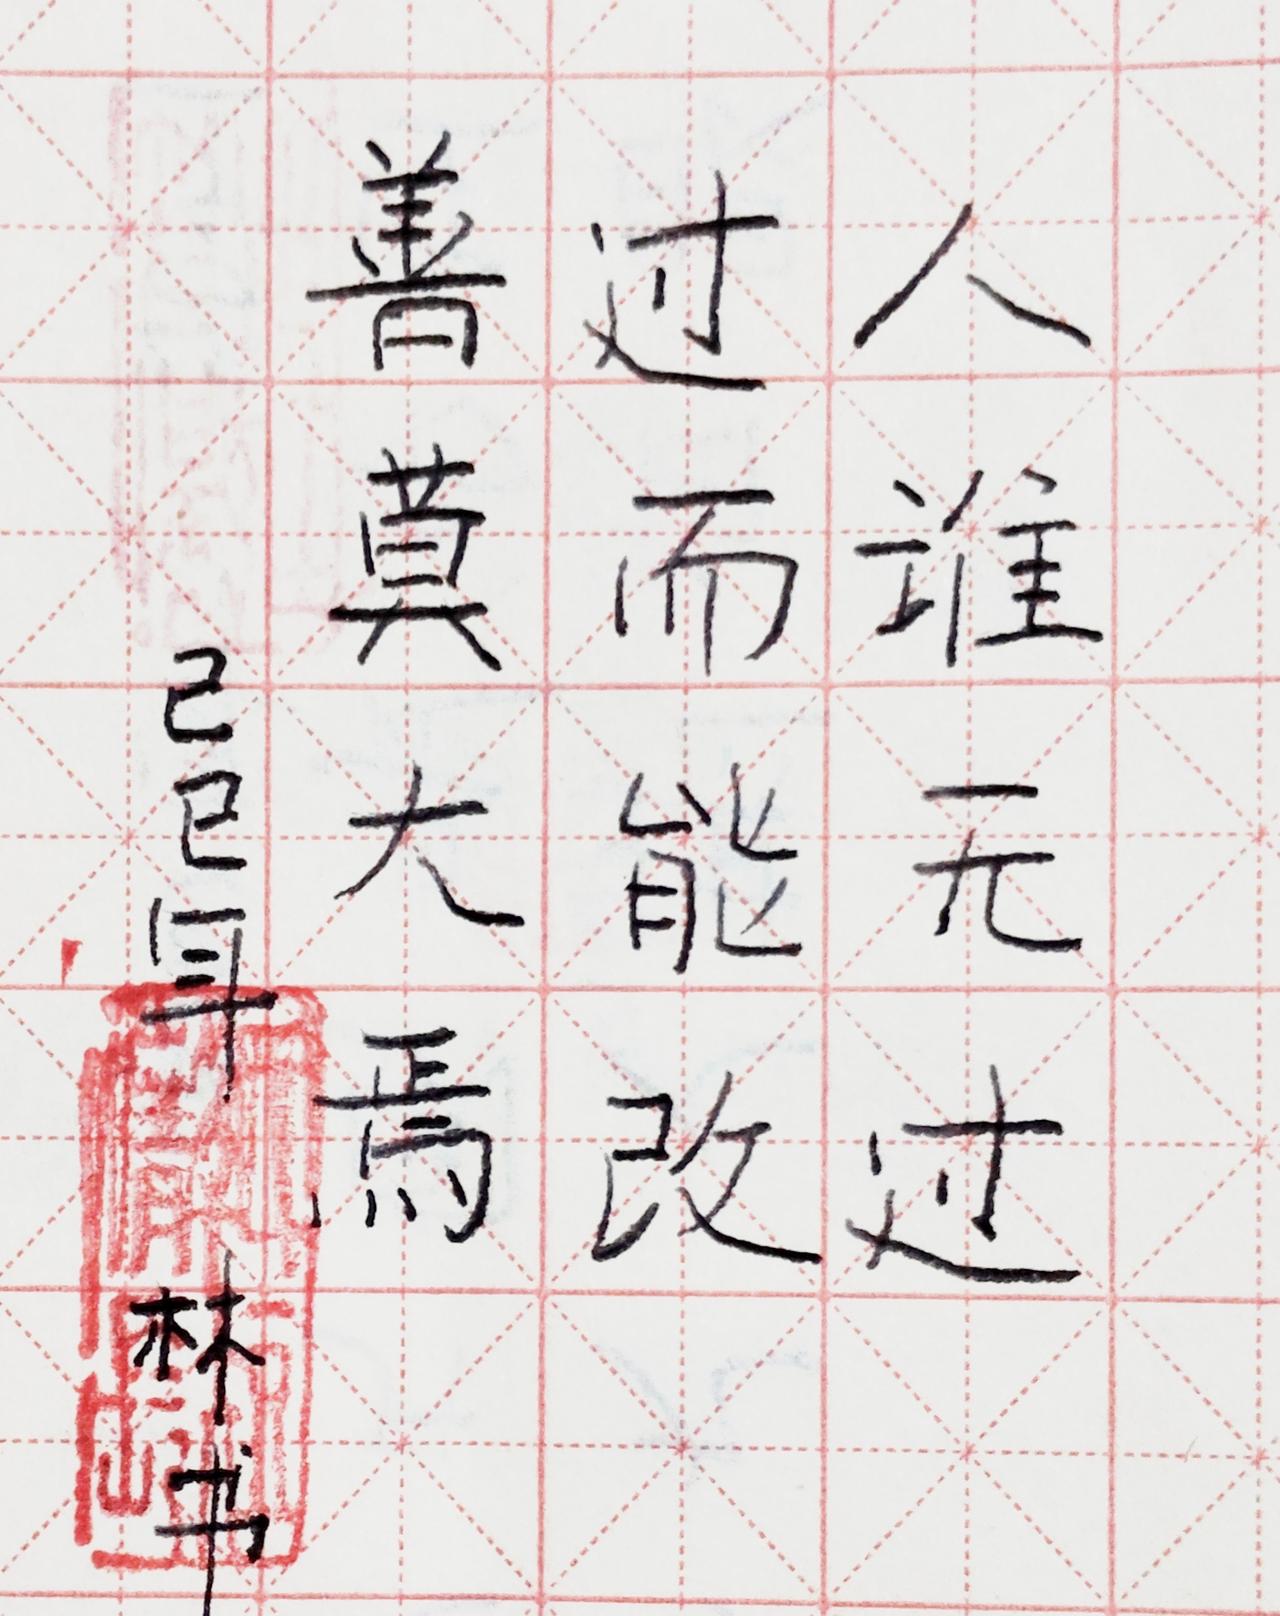 人谁无过
过而能改
善莫大焉
己巳年 林书